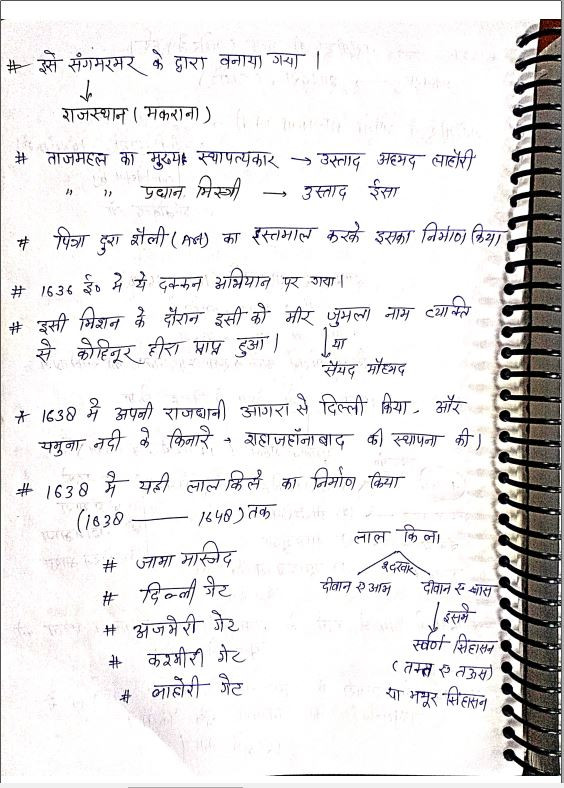 # इसे संगमरमर के द्वारा बनाया गया ।
↓
राजस्थान ( मकराना )
# ताजमहल का मुख्य स्थापत्यकार → उस्ताद अहमद लाहौरी
" " प्रधान मिस्त्री → उस्ताद ईसा
# पित्रा दुरा शैली (Art) का इस्तमाल करके इसका निर्माण किया
# 1636 ई० में ये दक्कन अभियान पर गया।
# इसी मिशन के दौरान इसी को मीर जुमला नाम व्यक्ति
से कोहिनूर हीरा प्राप्त हुआ।
↓ या
सैयद मोहमद
* 1638 में अपनी राजधानी आगरा से दिल्ली किया, और
यमुना नदी के किनारे - शहाजहाँनाबाद की स्थापना की।
# 1638 में यही लाल किले का निर्माण किया
(1638 — 1648) तक
# जामा मस्जिद
# दिल्ली गेट
# अजमेरी गेट
# कश्मीरी गेट
# लाहोरी गेट
लाल किला
2 दरबार
दीवान ए आम दीवान ए खास
↓ इसमें
स्वर्ण सिंहासन
( तख्त ए ताऊस)
या मयूर सिंहासन